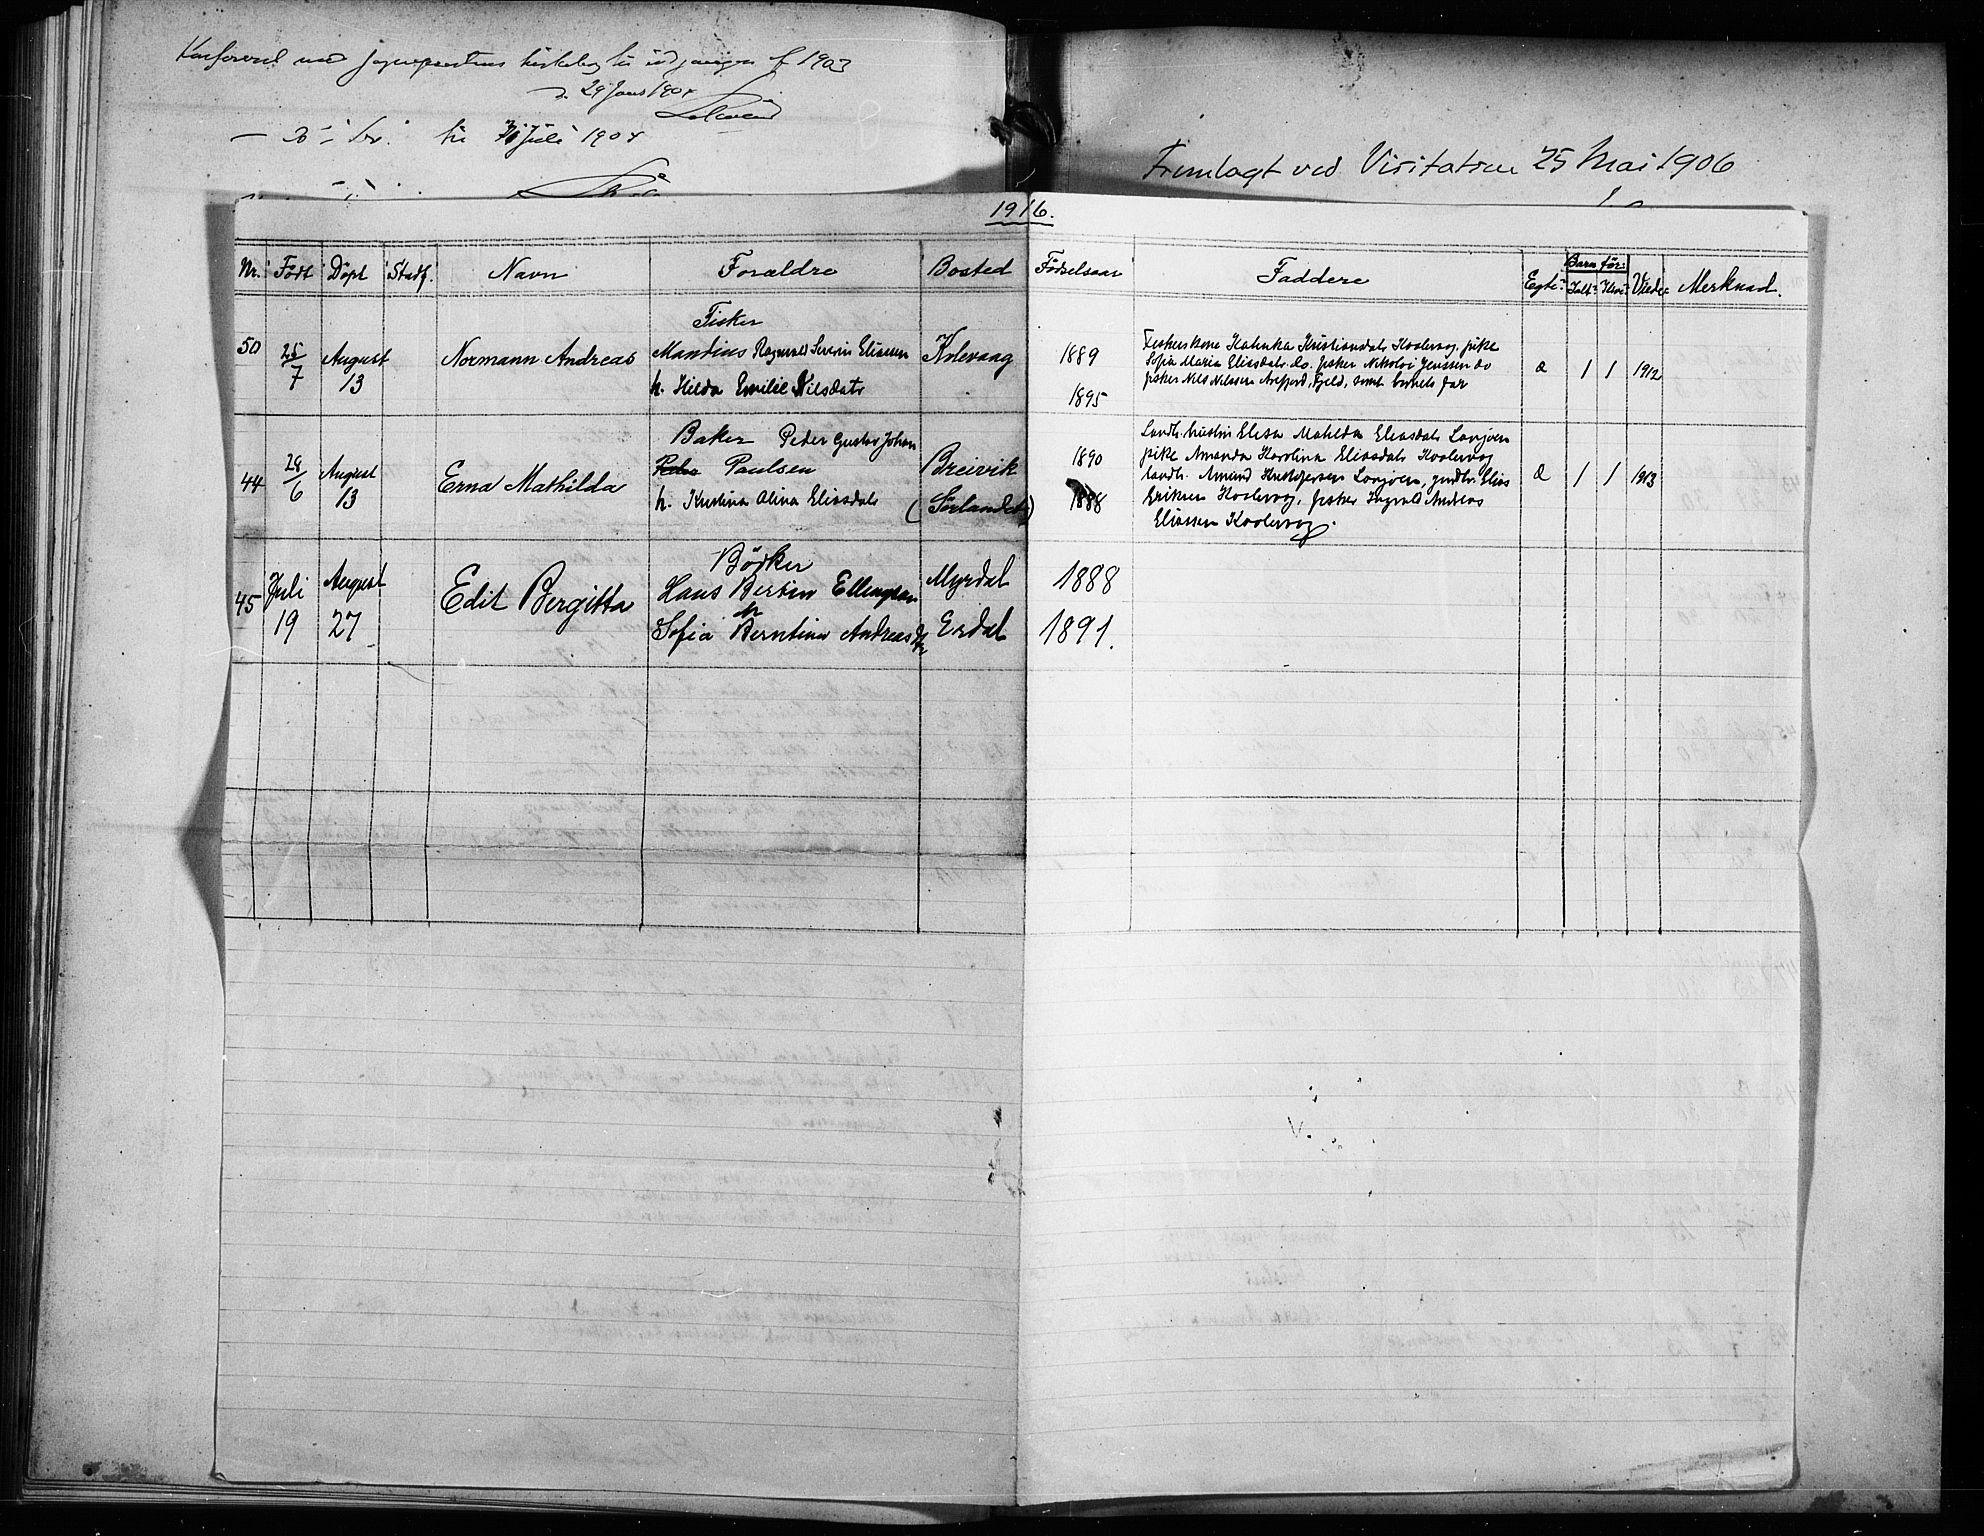 Konfereret med sogneprestens kirkebog til udgangen af 1903
d. 29 Jans 1904
— Do — til 31 Juli 1904
Fremlagt ved Visitatsen 25 Mai 1906
1916.
Nr. Født Døpt Stadf. Navn Forældre Bosted Fødselsaar Faddere Egte Barn før: Ialt Ilive Viede Merknad.
50 25/7 August 13 Normann Andreas
Fisker
Mandius Ragnvald Severin Eliassen
h. Hilda Emilie Nilsdatr
Kolevaag
1889
1895
Fiskerkone Katinka Kristiansdatr Koolevog, pike
Sofia Maria Eliasdatr do. fisker Nikolai Jenssen do
fisker Nils Nilssen Arefjord, Fjeld, samt barnets far
e 1 1 1912
44 28/6 August 13 Erna Mathilda
Baker Peder Gustav Johan
Paulsen
h. Kristina Olina Eliasdatr
Breivik
(Sørlandet)
1890
1888
Landh. hustru Elesa Matilda Eliasdatr Lonjoen
pike Amanda Karolina Eliasdatr Koolevog
landh. Amund Kristofersen Lonjoen, gmdbr. Elias
Eriksen Koolevog, fisker Ingvald Andreas
Eliassen Koolevog.
e 1 1 1913
45 Juli 19 August 27 Edit Bergitta
Bödker
Hans Bertin Ellingsen
h
Sofia Berntine Andreasdtr
Myrdal
Erdal
1888
1891.